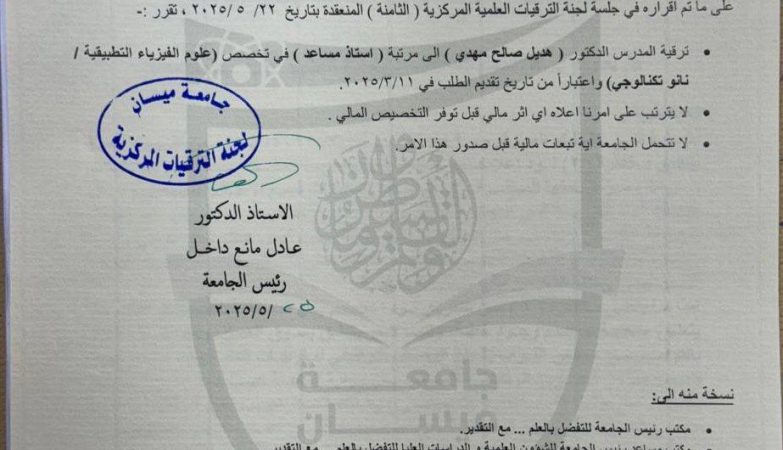 على ما تم اقراره في جلسة لجنة الترقيات العلمية المركزية ( الثامنة ) المنعقدة بتاريخ ٢٢/ ٥ /٢٠٢٥ ، تقرر :-
• ترقية المدرس الدكتور ( هديل صالح مهدي ) الى مرتبة ( استاذ مساعد ) في تخصص (علوم الفيزياء التطبيقية /
نانو تكنالوجي) واعتباراً من تاريخ تقديم الطلب في ٢٠٢٥/٣/١١.
• لا يترتب على امرنا اعلاه اي اثر مالي قبل توفر التخصيص المالي .
• لا تتحمل الجامعة اية تبعات مالية قبل صدور هذا الامر.
جامعة ميسان
لجنة الترقيات المركزية
الاستاذ الدكتور
عادل مانع داخل
رئيس الجامعة
٢٠٢٥/٥/٢٥
جامعة
ميسان
نسخة منه الى:
• مكتب رئيس الجامعة للتفضل بالعلم ... مع التقدير.
• مكتب مساعد رئيس الجامعة للشؤون العلمية و الدراسات العليا للتفضل بالعلم ... مع التقدير